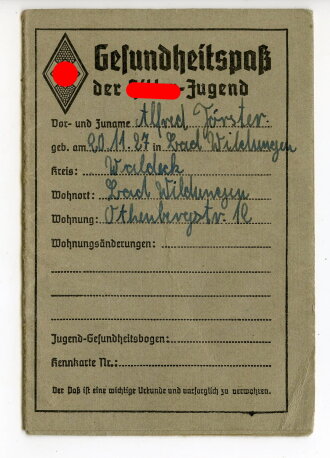 Gesundheitspaß
der -Jugend
Vor- und Zuname Alfred Förster.
geb. am 20.11.27 in Bad Wildungen
Kreis: Waldeck
Wohnort: Bad Wildungen
Wohnung: 
Wohnungsänderungen:
Jugend-Gesundheitsbogen:
Kennkarte Nr.:
Der Paß ist eine wichtige Urkunde und vorsorglich zu verwahren.